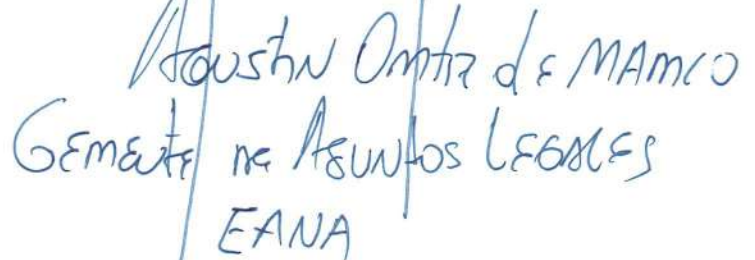 Agustin Ortiz de MAmco
GErente de Asuntos LEGALES
EANA